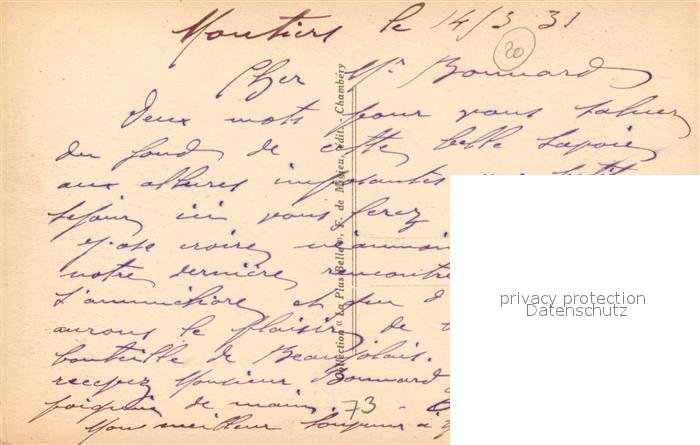 Moutiers le 14/3 31
20
Cher Mr Bonnard
Deux mots pour vous saluer
du fond de cette belle Savoie
aux allures imposantes
séjour ici vous ferez
j'ose croire néanmoins
notre dernière rencontre
s'améliore et que
aurons le plaisir de
bouteille de Beaujolais.
recevez Monsieur Bonnard
poignée de main.
73
Collection « La Plus Belle », F. de édit. - Chambéry
privacy protection
Datenschutz